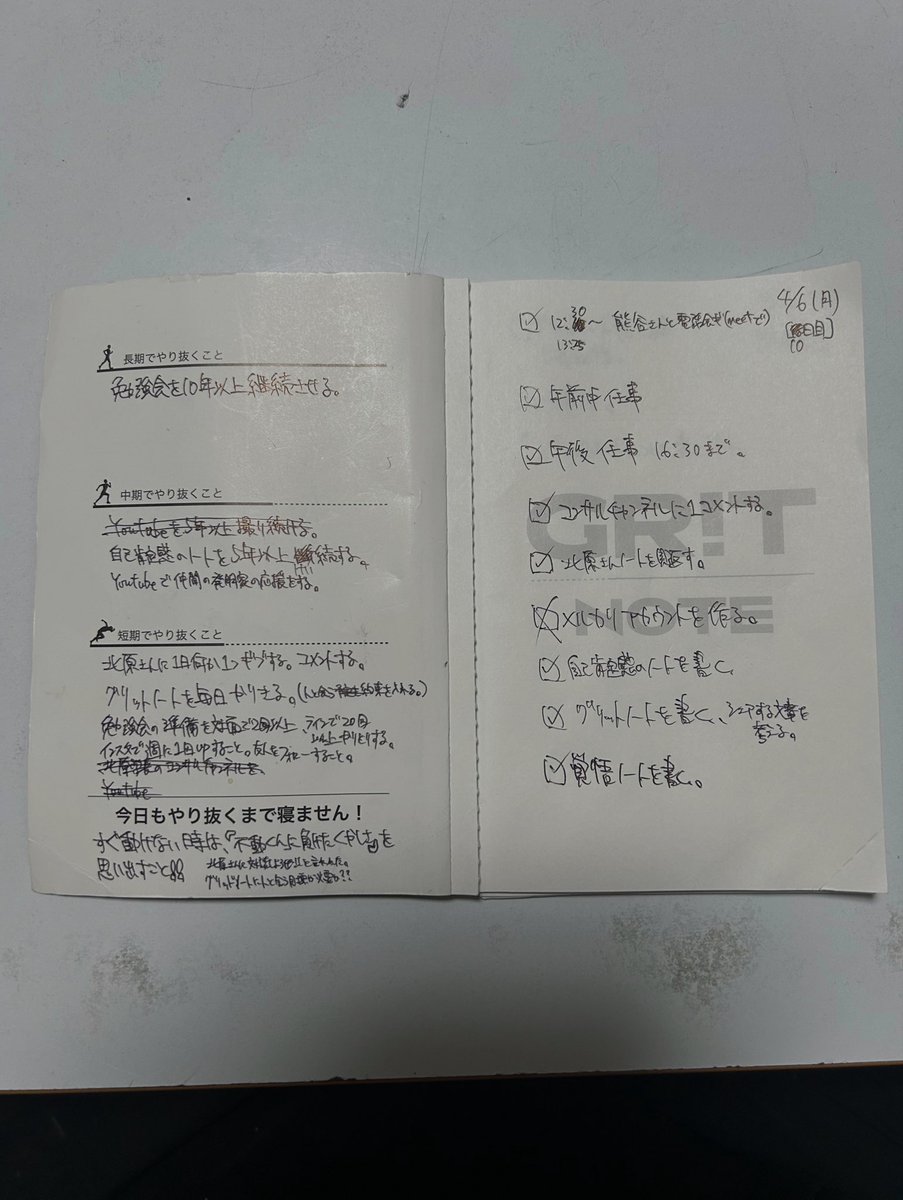 長期でやり抜くこと
勉強会を10年以上継続させる。
中期でやり抜くこと
Youtubeを5年以上撮り続ける。
自己肯定感のノートを5年以上継続する。
Youtubeで仲間の発明家の応援をする。
短期でやり抜くこと
北原さんに1日何か1つギブする。コメントする。
グリットノートを毎日やりきる。(人と会う約束を入れる。)
勉強会の準備を対面で2回以上、ラインで20回
以上やりとりする。
インスタで週に1回UPすること。友人をフォローすること。
Youtube
今日もやり抜くまで寝ません！
すぐ動けない時は、「不動くんに負けたくやしさ」を
思い出すこと!!
北原さんに対談しようぜ!!と言われた。
グリットノートに人と会う目標が必要か??
4/6(月)
[日目]
10
12:30〜 熊谷さんと電話会議(meetで)
13:25
午前中仕事
午後仕事 16:30まで。
コンサルチャンネルに1コメントする。
北原さんノートを見返す。
GRIT
NOTE
メルカリアカウントを作る。
自己肯定感のノートを書く。
グリットノートを書く、シェアする文章を
考える。
覚悟ノートを書く。